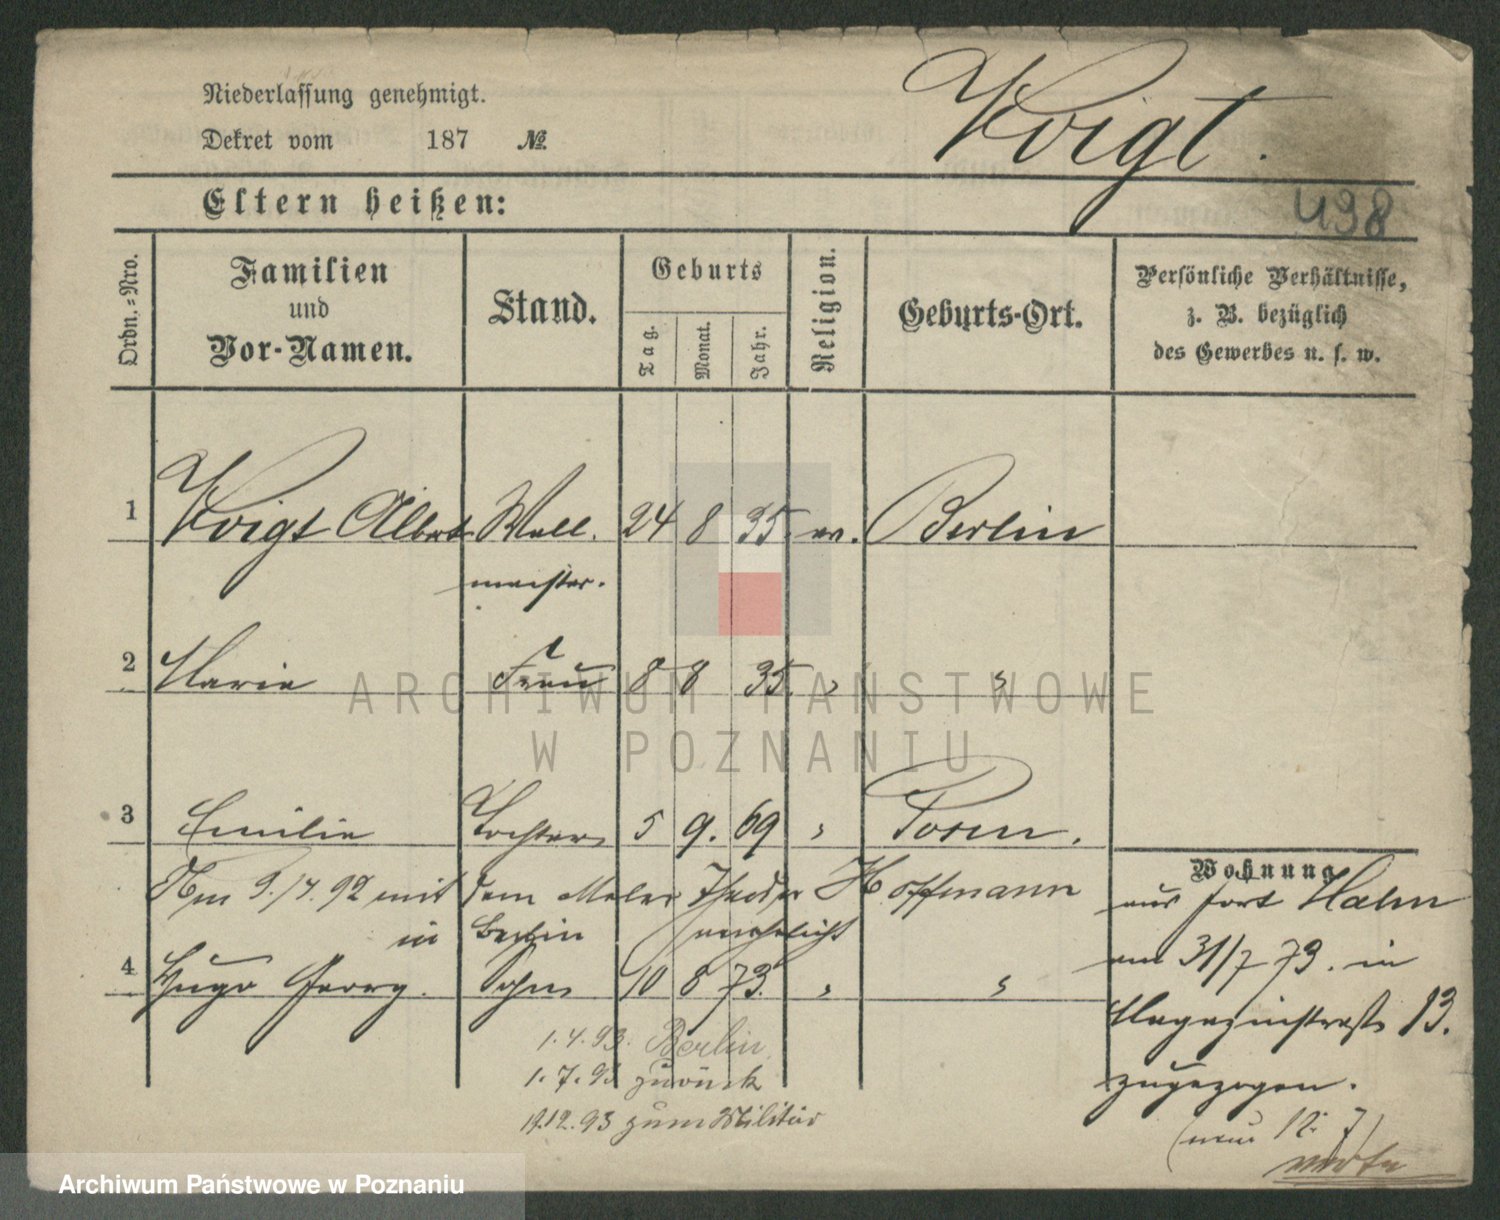 Niederlassung genehmigt.
Dekret vom 187 №
Voigt.
498
Eltern heißen:
Ordn.-Nro.
Familien
und
Vor-Namen.
Stand.
Geburts
Tag.
Monat.
Jahr.
Religion.
Geburts-Ort.
Persönliche Verhältnisse,
z. B. bezüglich
des Gewerbes u. s. w.
1 Voigt Albert Wall. 24 8 35. ev. Berlin
meister.
2 Marie Frau 8 8 35. " "
ARCHIWUM PAŃSTWOWE
W POZNANIU
3 Emilie Tochter 5 9. 69 " Posen.
Am 9./4. 92 mit dem Maler Theodor Hoffmann
in Berlin verehelicht
4 Hugo Georg. Sohn 10 8 73. " "
1.4.93. Berlin
1.7.93 zurück
19.12.93 zum Militär
Wohnung
aus Fort Hahn
am 31/7 73. in
Magazinstraße 13.
zugezogen.
(neu 12. 7)
verte
Archiwum Państwowe w Poznaniu